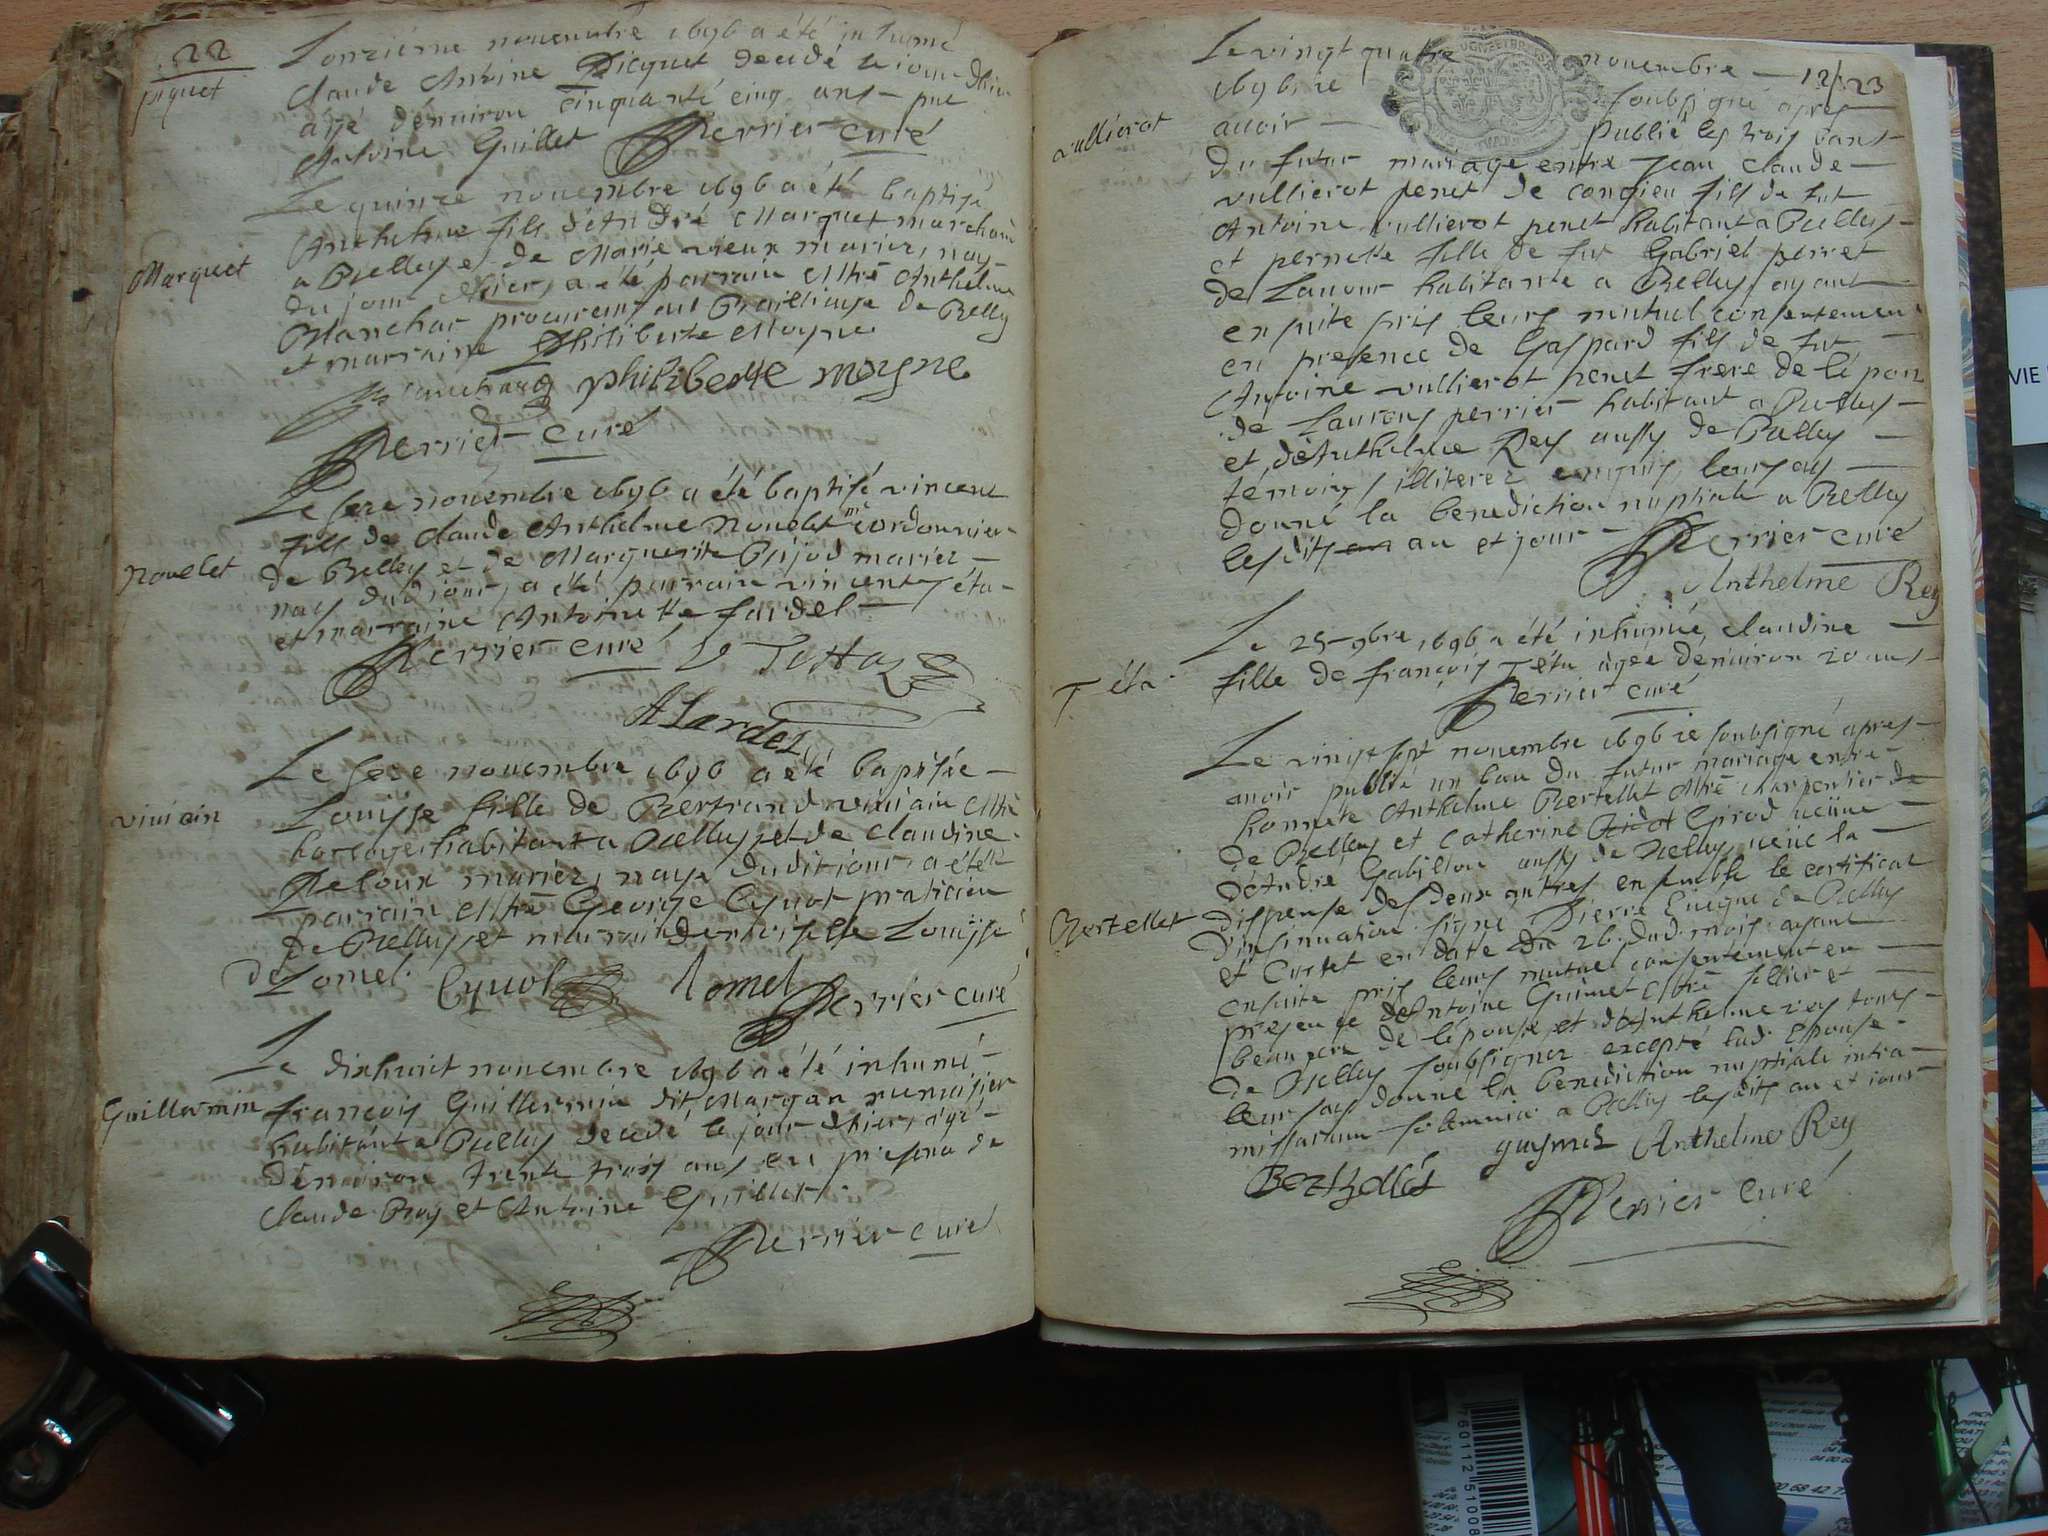 22
L'onzième novembre 1696 a été inhumé
piquet
claude Antoine Picquet decedé le jour d'hier
agé d'enuiron cinquante cinq ans
Antoine Guillet Perrier curé
Le quinze novembre 1696 a été baptisé
Anthelme fils d'André Marquet marchand
Marquet
a Belley et de Marie vieux mariez, nay
du jour d'hier, a été parrain Mtre Anthelme
Manchar procureur au Bailliage de Belley
et marraine Philiberte Moyne
philiberte moyne
Perrier curé
Le seze novembre 1696 a été baptisé vincent
fils de claude Anthelme Nouelet me cordonnier
Nouelet
de Belley et de Marguerite Pijod mariez
nay dud jour, a été parrain vincent Téta
et marraine Antoinette fardel
Perrier curé
Le seze novembre 1696 a été baptisée
viniain
Louisse fille de Bertrand viniain Mtre
horloger habitant a Belley et de claudine
Peloux mariez, naye dudit jour, a été
parrain Mtre George Cyuot praticien
de Belley et marraine demoiselle Louisse
de Lomel. Cyuot Lomel Perrier curé
Le dixhuit novembre 1696 a été inhumé
Guillermin
françois Guillermin dit Margan menusier
habitant a Belley decedé le jour d'hier, agé
d'enuiron trente trois ans en presence de
Claude Roy et Antoine Guillet.
Perrier curé
Le vingt quatre novembre 12/23
1696 ie soubsigné apres
vullierot
auoir publié les trois bans
du futur mariage entre Jean claude
vullierot penet de congieu fils de fut
Antoine vullierot penet habitant a Belley
et pernette fille de fut Gabriel perret
de Lauour habitante a Belley, ayant
ensuite pris leurs mutuel consentement
en presence de Gaspard fils de fut
Antoine vullierot penet frere de l'épou
de Laurens perrier habitant a Belley
et d'Anthelme Rey aussy de Belley
témoins illiterez enquis leur ay
donné la benediction nuptiale a Belley
lesdits an et jour
Perrier curé
Anthelme Rey
Le 25 9bre 1696 a été inhumée, claudine
Téta
fille de françois Téta agée d'enuiron 20 ans
Perrier curé
Le vingt sept novembre 1696 ie soubsigné apres
auoir publié un ban du futur mariage entre
honnete Anthelme Bertellet Mtre charpentier de
de Belley et Catherine Girod
d'André Gabillon aussy de Belley, ueüe la
Bertellet
dispense des deux autres ensemble le certificat
d'insinuation signé Pierre Eueque de Belley
et Curtet en date du 26 dud. mois ayant
ensuite pris leurs mutuel consentement en
presence d'Antoine Guimet Mtre sellier et
beaupere de l'épouse et d'Anthelme rey tous
de Belley soubsignez excepté lad. Epouse
leur ay donné la benediction nuptiale intra
missarum solemnia a Belley lesdits an et jour
Anthelme Rey
Perrier curé